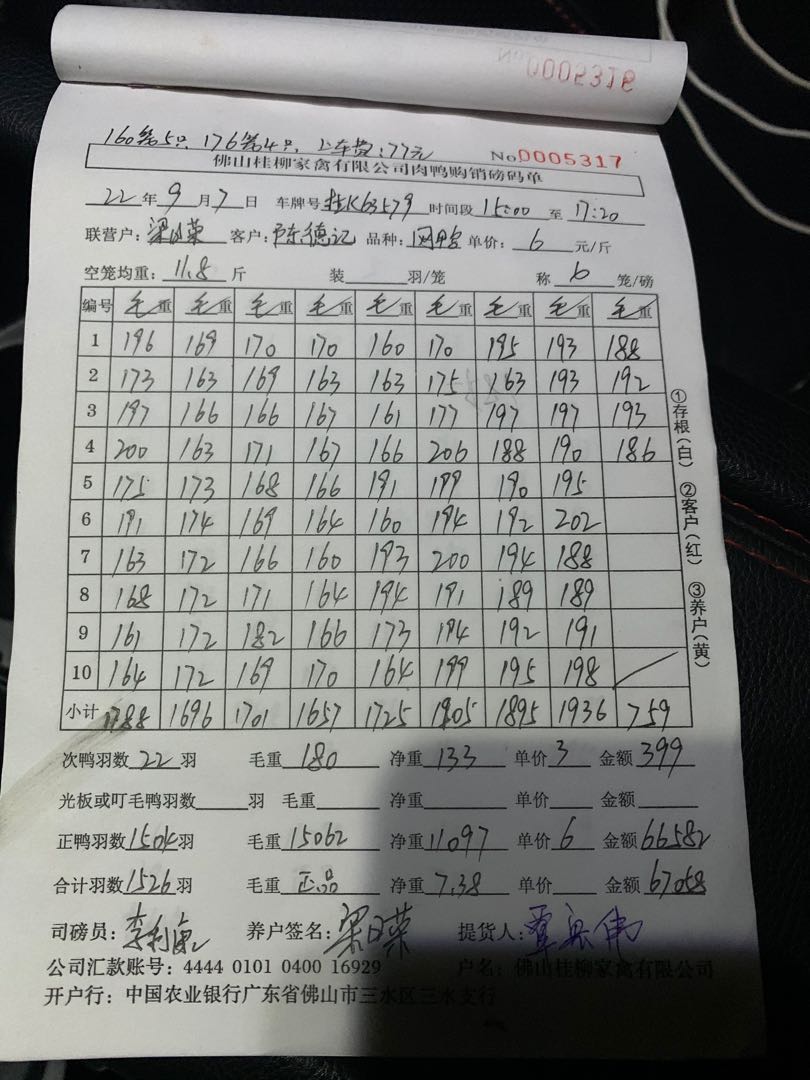 No 0005318
160第5只, 176第4只, 上车费:77元
No 0005317
佛山桂柳家禽有限公司肉鸭购销磅码单
22年9月7日 车牌号桂K63579 时间段15:00至17:20
联营户:梁日荣 客户:陈德记 品种:网鸭 单价:6元/斤
空笼均重:11.8斤 装____羽/笼 称6笼/磅
编号 毛重 毛重 毛重 毛重 毛重 毛重 毛重 毛重 毛重
1 196 169 170 170 160 170 195 193 188
2 173 163 169 163 163 175 163 193 192
3 197 166 166 167 161 177 197 197 193
4 200 163 171 167 166 206 188 190 186
5 175 173 168 166 191 199 190 195
6 191 174 169 164 160 194 192 202
7 163 172 166 160 193 200 194 188
8 168 172 171 164 194 191 189 189
9 161 172 182 166 173 194 192 191
10 164 172 169 170 164 199 195 198
小计 1788 1696 1701 1657 1725 1905 1895 1936 759
①存根(白) ②客户(红) ③养户(黄)
次鸭羽数22羽 毛重180 净重133 单价3 金额399
光板或叮毛鸭羽数____羽 毛重____ 净重____ 单价____ 金额____
正鸭羽数1504羽 毛重15062 净重11097 单价6 金额66582
合计羽数1526羽 毛重正品 净重7.38 单价____ 金额67058
司磅员: 养户签名:梁日荣 提货人:
公司汇款账号:4444 0101 0400 16929 户名:佛山桂柳家禽有限公司
开户行:中国农业银行广东省佛山市三水区三水支行